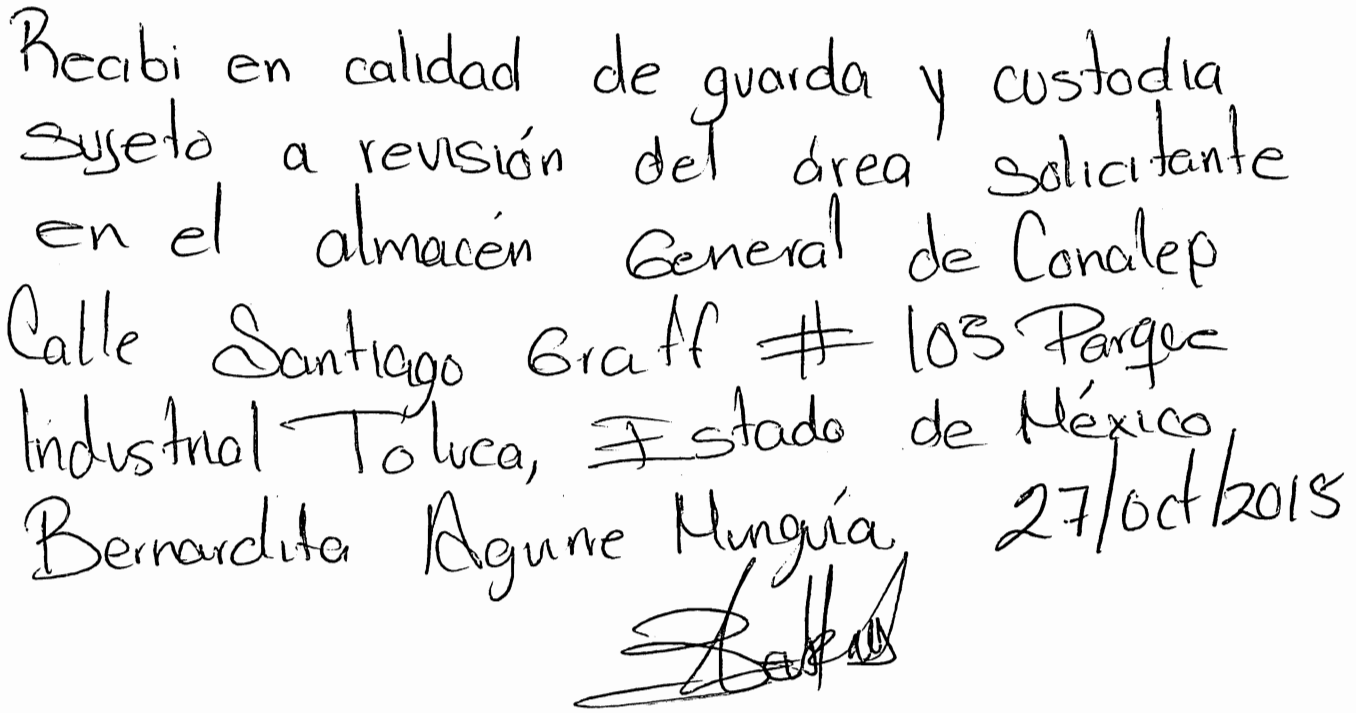 Recibi en calidad de guarda y custodia
sujeto a revisión del área solicitante
en el almacén General de Conalep
Calle Santiago Graff # 103 Parque
Industrial Toluca, Estado de México,
Bernardita Aguirre Munguía 27/oct/2015